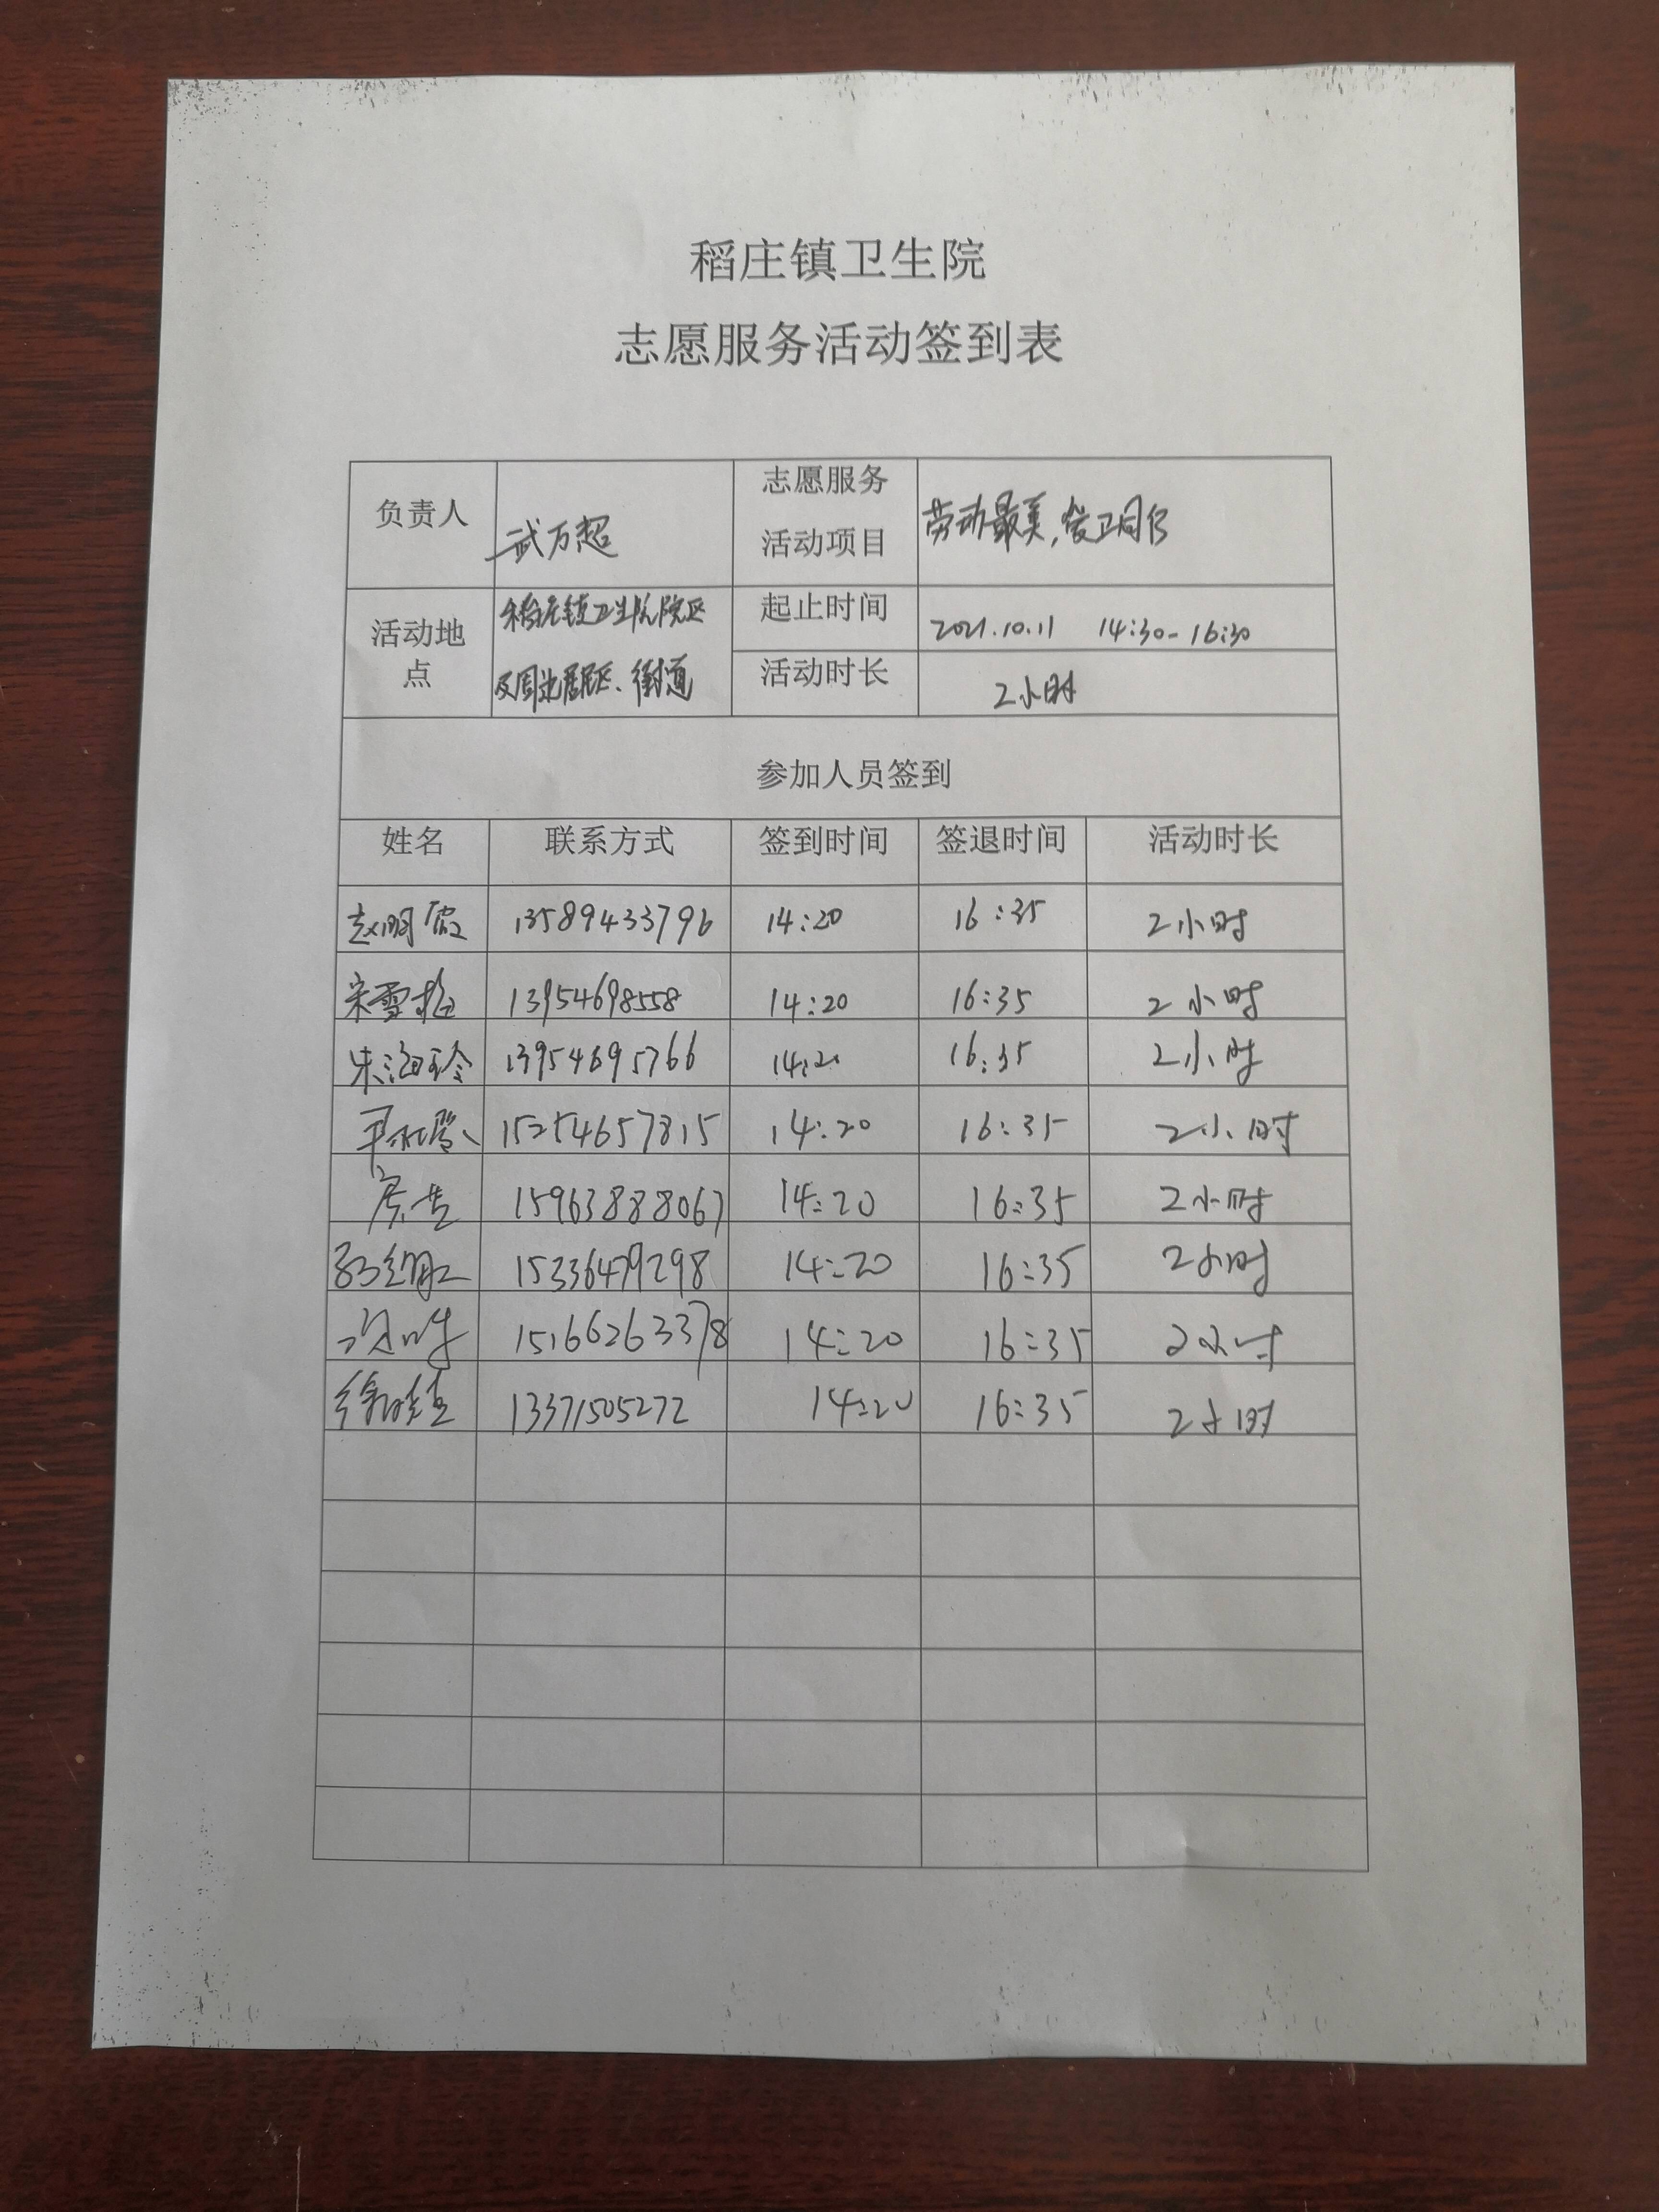 稻庄镇卫生院
志愿服务活动签到表
负责人 武万超 志愿服务活动项目 劳动最美,爱卫同行
活动地点 稻庄镇卫生院院区及周边居民区、街道 起止时间 2021.10.11 14:30-16:30
活动时长 2小时
参加人员签到
姓名 联系方式 签到时间 签退时间 活动时长
赵明 13589433796 14:20 16:35 2小时
宋雪梅 13954698558 14:20 16:35 2小时
朱海玲 13954695766 14:20 16:35 2小时
15254657815 14:20 16:35 2小时
15963888067 14:20 16:35 2小时
15336479298 14:20 16:35 2小时
15166263378 14:20 16:35 2小时
徐 13371505272 14:20 16:35 2小时